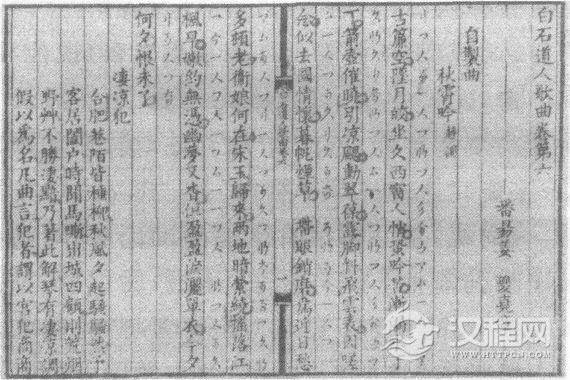 白石道人歌曲卷第六
番昜姜 夔堯
自製曲
秋宵吟 越調
古簾空墜月皎坐久西窗人悄蛩吟苦漸漏水丁
丁箭壺催曉引凉颸動翠葆露脚斜飛雲表因嗟
念似去國情懷暮帆煙草 帶眼銷磨為近日愁
多頓老衛娘何在宋玉歸來兩地暗縈繞搖落江
楓早嫩約無憑幽夢又杳但盈盈淚灑單衣今夕
何夕恨未了
凄凉犯
合肥巷陌皆種柳秋風夕起騷騷然予
客居闔戶時聞馬嘶出城四顧則荒煙
野艸不勝凄黯乃著此解琴有凄凉調
假以為名凡曲言犯者謂以宮犯商商
汉程网
WWW.HTTPCN.COM